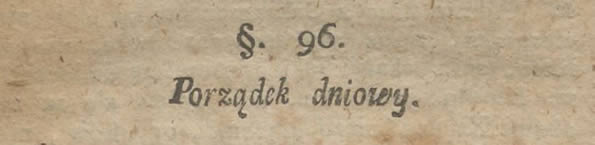 §. 96.
Porządek dniowy.